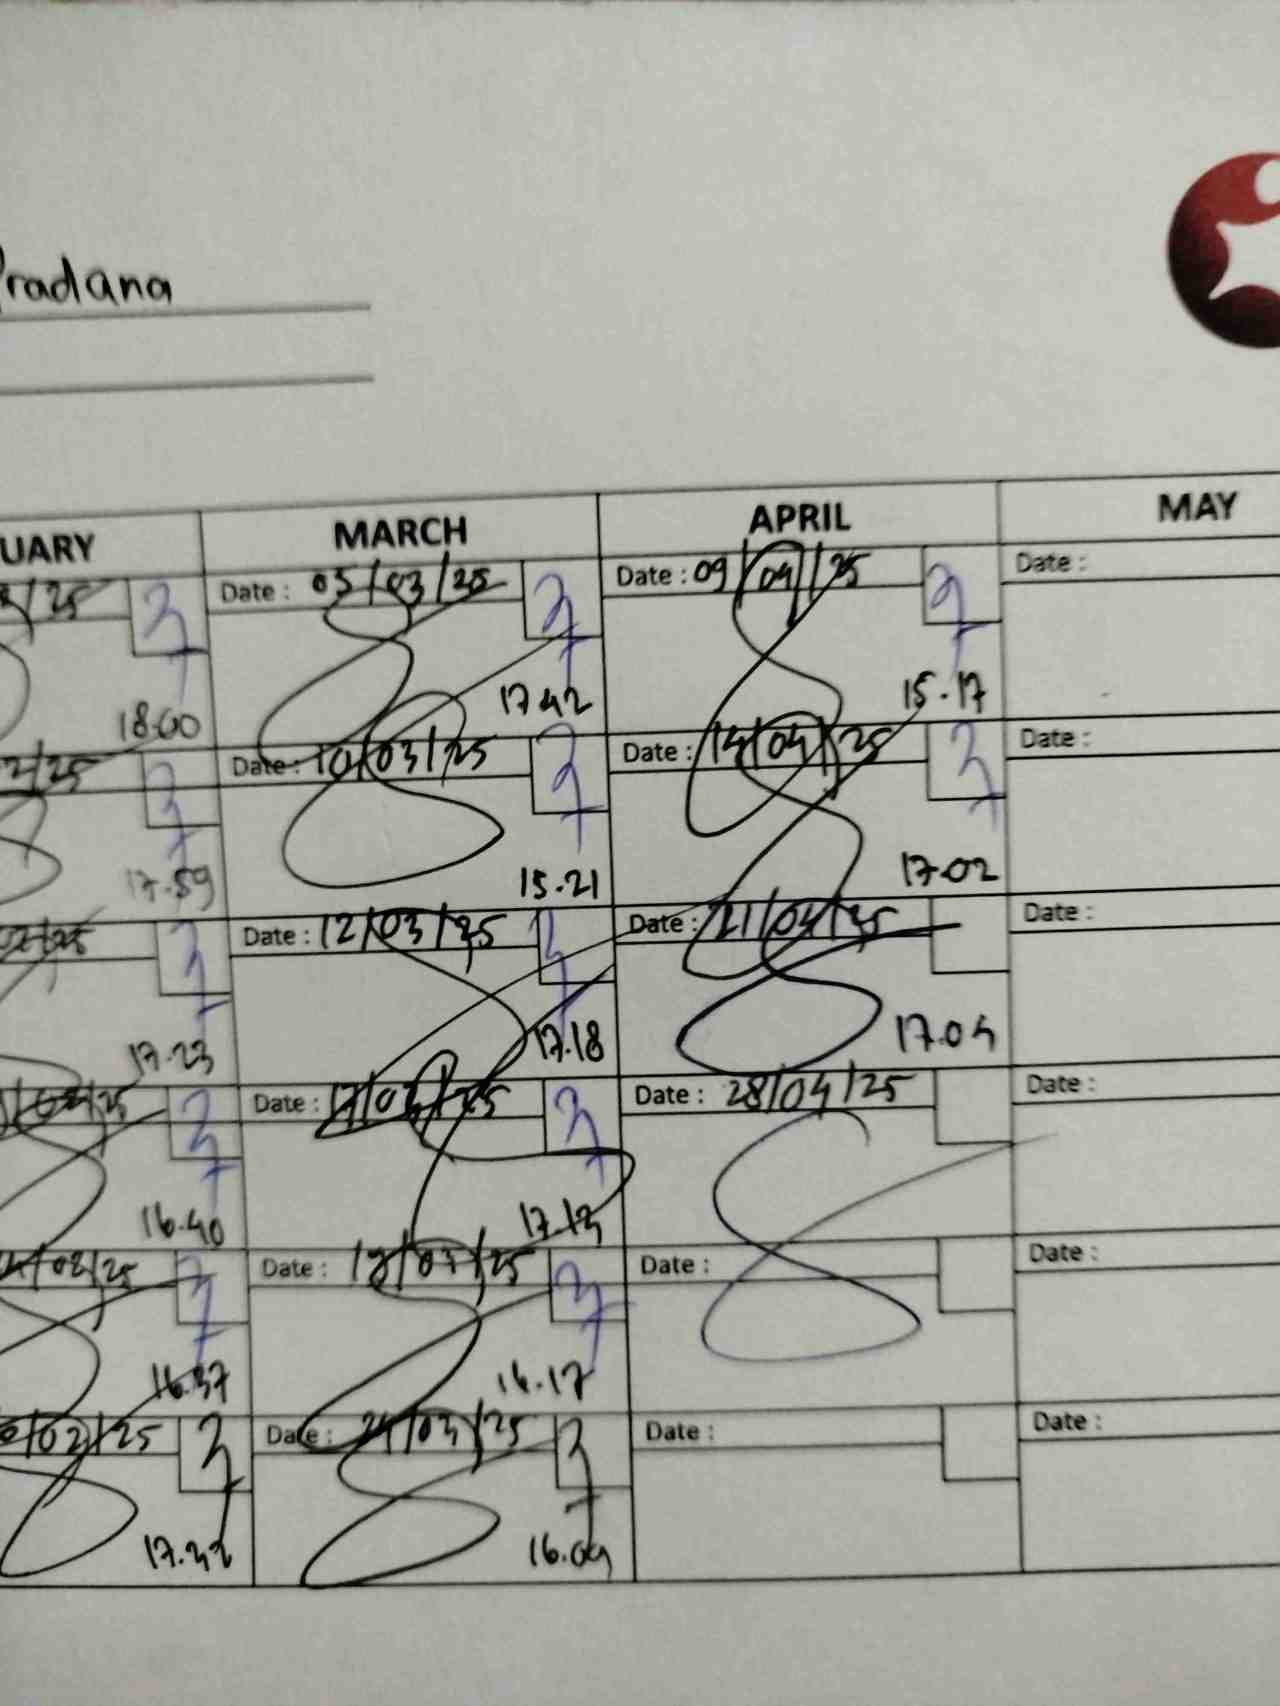 Pradana
UARY MARCH APRIL MAY
/25 Date : 05/03/25 Date : 09/04/25 Date :
18.00 17.42 15.17
/25 Date : 10/03/25 Date : 14/04/25 Date :
17.59 15.21 17.02
02/25 Date : 12/03/25 Date : 21/04/25 Date :
17.23 17.18 17.04
/25 Date : 17/03/25 Date : 28/04/25 Date :
16.40 17.13
/02/25 Date : /03/25 Date : Date :
16.37 16.17
/02/25 Date : 24/03/25 Date : Date :
17.32 16.09